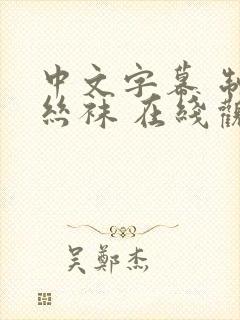 中文字幕 制
丝袜 在线观
吴郑杰